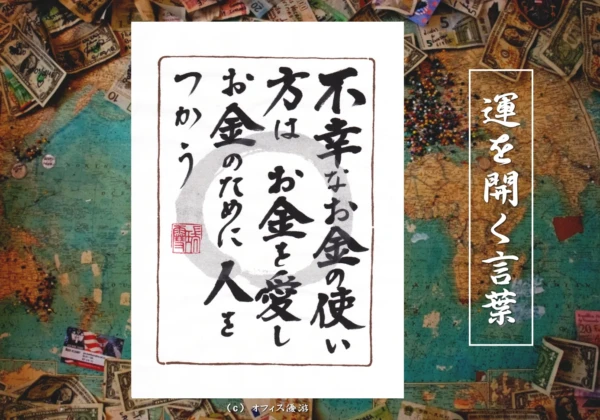 運を開く言葉
不幸なお金の使い
方は お金を愛し
お金のために 人を
つかう
(c) オフィス優游